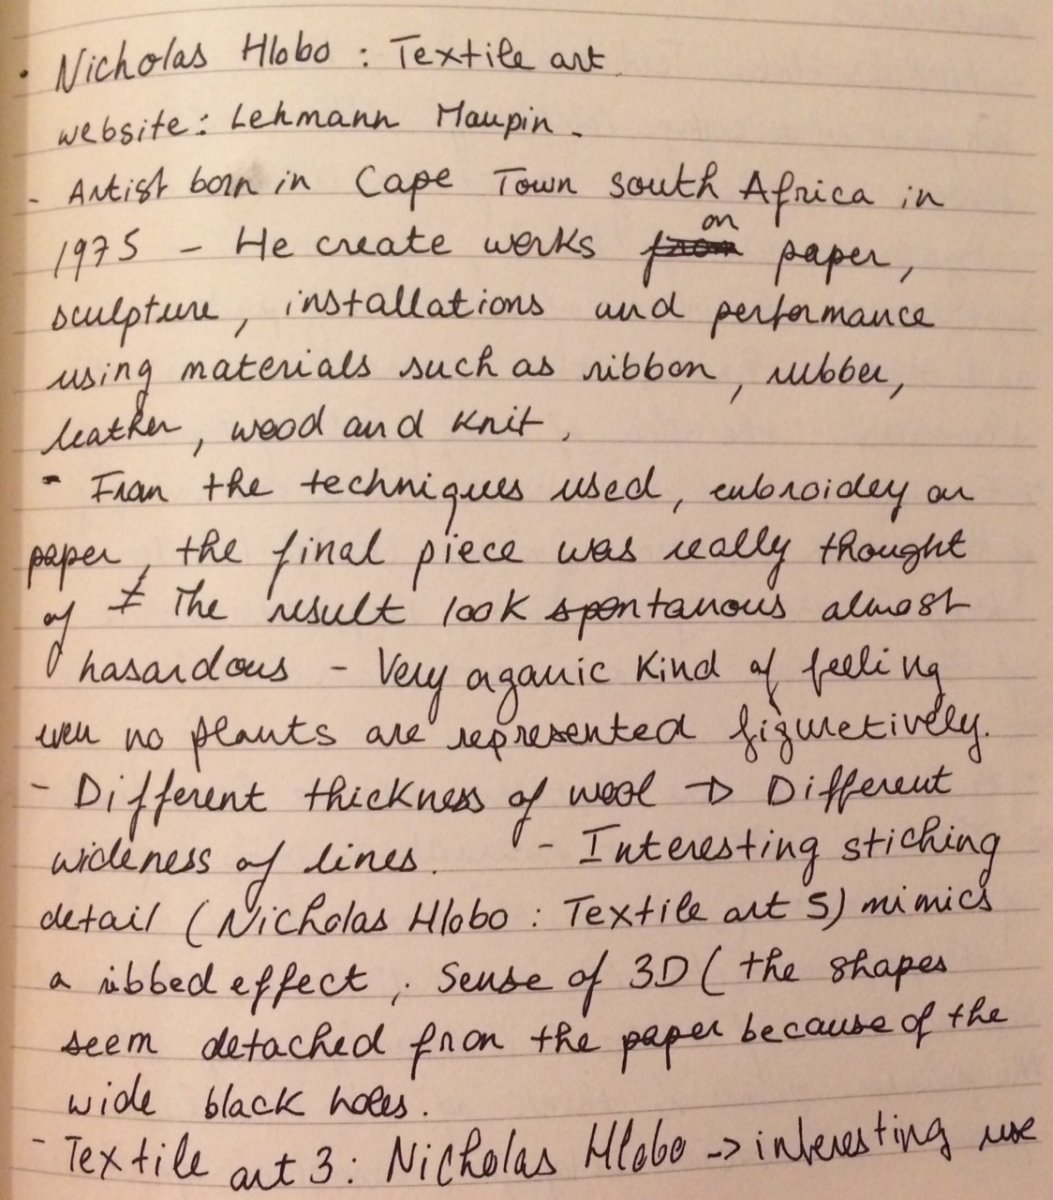 • Nicholas Hlobo : Textile art
website : Lehmann Maupin -
- Artist born in Cape Town south Africa in
1975 - He create works from on paper,
sculpture, installations and performance
using materials such as ribbon, rubber,
leather, wood and knit.
- From the techniques used, enbroidey on
paper, the final piece was really thought
of ≠ The result look spontanous almost
hasardous - Very organic kind of feeling
even no plants are represented figuretively.
- Different thickness of wool → Different
wideness of lines. - Interesting stiching
detail (Nicholas Hlobo : Textile art 5) mimics
a ribbed effect, . Sense of 3D ( the shapes
seem detached from the paper because of the
wide black holes.
- Textile art 3 : Nicholas Hlobo -> interesting use